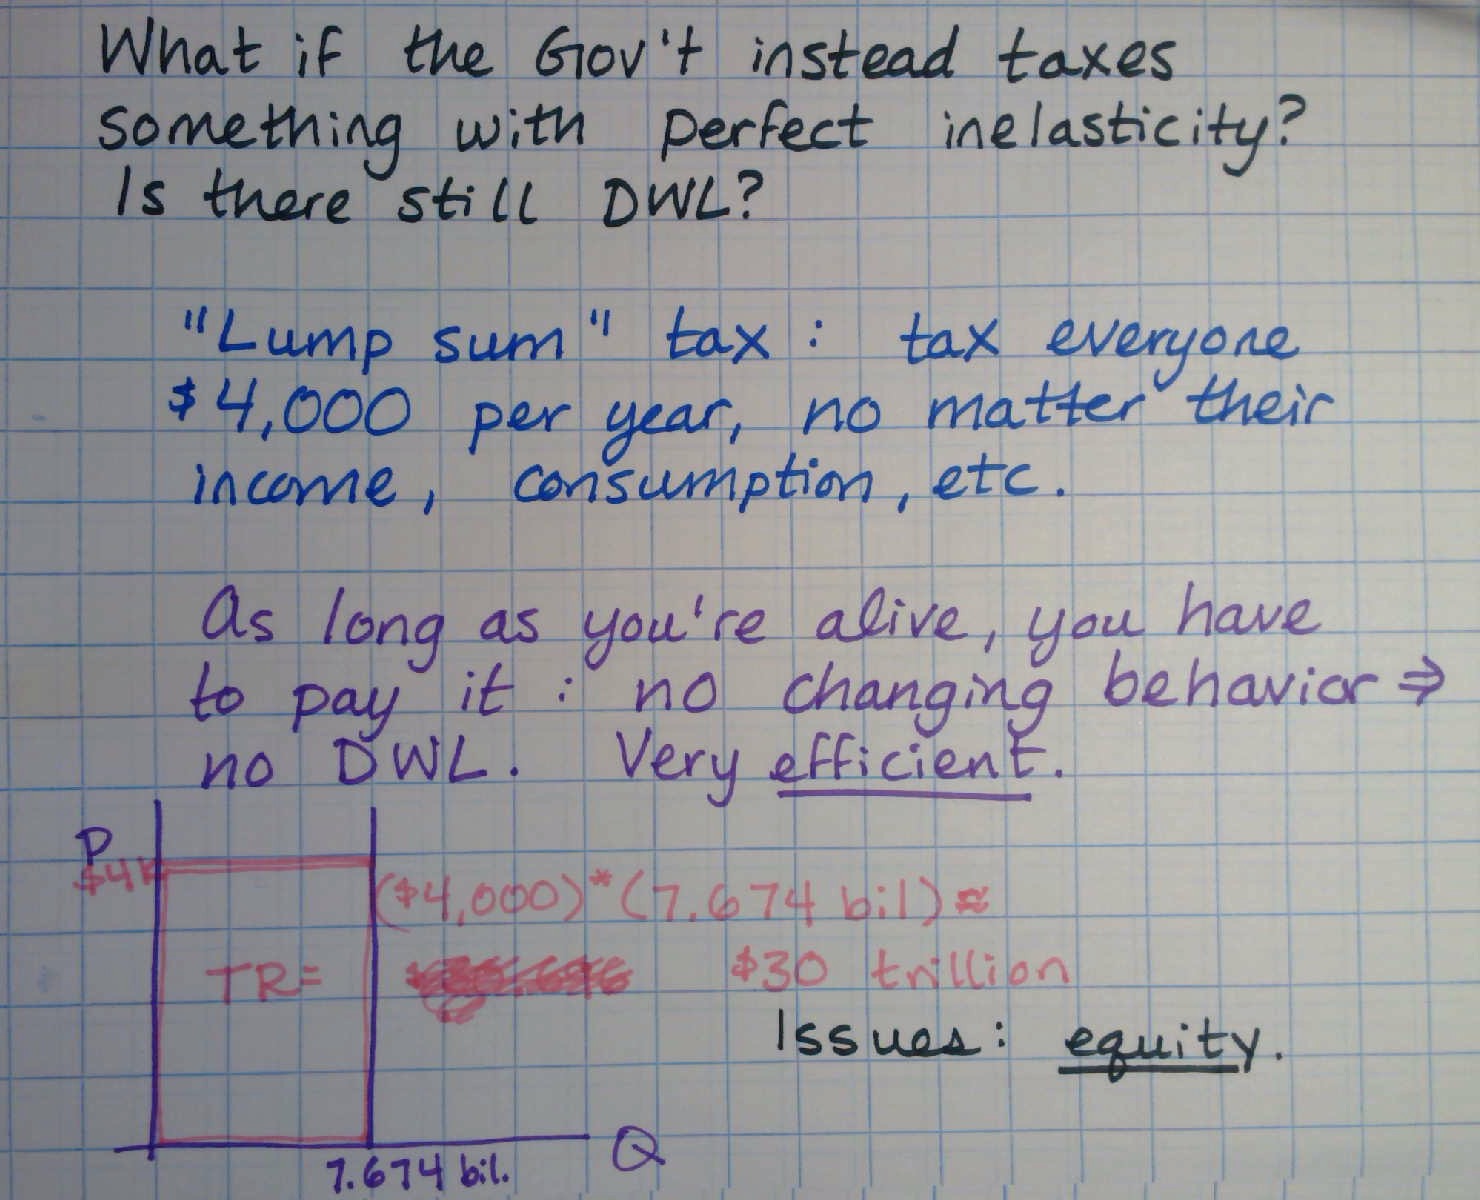 What if the Gov't instead taxes
something with perfect inelasticity?
Is there still DWL?
"Lump sum" tax : tax everyone
$4,000 per year, no matter their
income, consumption, etc.
As long as you're alive, you have
to pay it : no changing behavior ⇒
no DWL. Very efficient.
P
$4K
($4,000)*(7.674 bil) ≈
TR= $30 trillion
Issues: equity.
Q
7.674 bil.